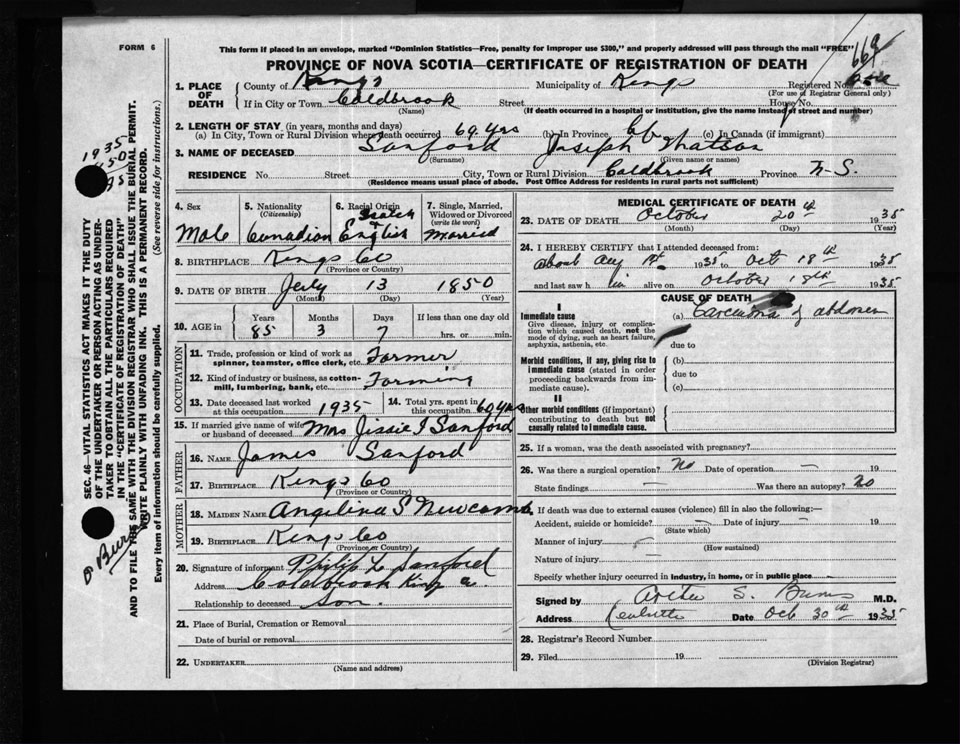 FORM 6
This form if placed in an envelope, marked "Dominion Statistics—Free, penalty for improper use $300," and properly addressed will pass through the mail "FREE"
669
PROVINCE OF NOVA SCOTIA—CERTIFICATE OF REGISTRATION OF DEATH
1. PLACE OF DEATH County of Kings Municipality of Kings Registered No.
(For use of Registrar General only)
If in City or Town Coldbrook Street House No.
(Name) (If death occurred in a hospital or institution, give the name instead of street and number)
2. LENGTH OF STAY (in years, months and days)
(a) In City, Town or Rural Division where death occurred 69 yrs (b) In Province (c) In Canada (if immigrant)
3. NAME OF DECEASED Sanford Joseph Watson
(Surname) (Given name or names)
RESIDENCE No. Street City, Town or Rural Division Coldbrook Province N-S.
(Residence means usual place of abode. Post Office Address for residents in rural parts not sufficient)
4. Sex Male
5. Nationality (Citizenship) Canadian
6. Racial Origin Scotch English
7. Single, Married, Widowed or Divorced (write the word) Married
8. BIRTHPLACE Kings Co
(Province or Country)
9. DATE OF BIRTH July 13 1850
(Month) (Day) (Year)
10. AGE in Years Months Days If less than one day old
85 3 7 hrs. or min.
OCCUPATION
11. Trade, profession or kind of work as spinner, teamster, office clerk, etc. Farmer
12. Kind of industry or business, as cotton-mill, lumbering, bank, etc. Farming
13. Date deceased last worked at this occupation 1935 14. Total yrs. spent in this occupation 60 yrs
15. If married give name of wife or husband of deceased Mrs Jessie I Sanford
FATHER
16. NAME James Sanford
17. BIRTHPLACE Kings Co
(Province or Country)
MOTHER
18. MAIDEN NAME Angelina S Newcomb
19. BIRTHPLACE Kings Co
(Province or Country)
20. Signature of informant Philip L Sanford
Address Coldbrook Kings Co
Relationship to deceased Son.
21. Place of Burial, Cremation or Removal
Date of burial or removal
22. UNDERTAKER
(Name and address)
MEDICAL CERTIFICATE OF DEATH
23. DATE OF DEATH October 20th 1935
(Month) (Day) (Year)
24. I HEREBY CERTIFY that I attended deceased from:
about Aug 1st 1935 to Oct 18th 1935
and last saw him alive on October 18th 1935
CAUSE OF DEATH
I
Immediate cause (a) Carcinoma of abdomen
Give disease, injury or complication which caused death, not the mode of dying, such as heart failure, asphyxia, asthenia, etc.
due to
Morbid conditions, if any, giving rise to immediate cause (stated in order proceeding backwards from immediate cause).
(b)
due to
(c)
II
Other morbid conditions (if important) contributing to death but not causally related to immediate cause.
25. If a woman, was the death associated with pregnancy?
26. Was there a surgical operation? No Date of operation — 19
State findings — Was there an autopsy? No
27. If death was due to external causes (violence) fill in also the following:—
Accident, suicide or homicide? — Date of injury — 19
(State which)
Manner of injury —
(How sustained)
Nature of injury —
Specify whether injury occurred in industry, in home, or in public place
Signed by Arthur S. Burns M.D.
Address Kentville Date Oct 30th 1935
28. Registrar's Record Number
29. Filed 19
(Division Registrar)
SEC. 46—VITAL STATISTICS ACT MAKES IT THE DUTY
OF THE UNDERTAKER OR PERSON ACTING AS UNDERTAKER
TO OBTAIN ALL THE PARTICULARS REQUIRED
IN THE "CERTIFICATE OF REGISTRATION OF DEATH"
AND TO FILE THE SAME WITH THE DIVISION REGISTRAR WHO SHALL ISSUE THE BURIAL PERMIT.
WRITE PLAINLY WITH UNFADING INK. THIS IS A PERMANENT RECORD.
Every item of information should be carefully supplied. (See reverse side for instructions.)
1935
1850
85